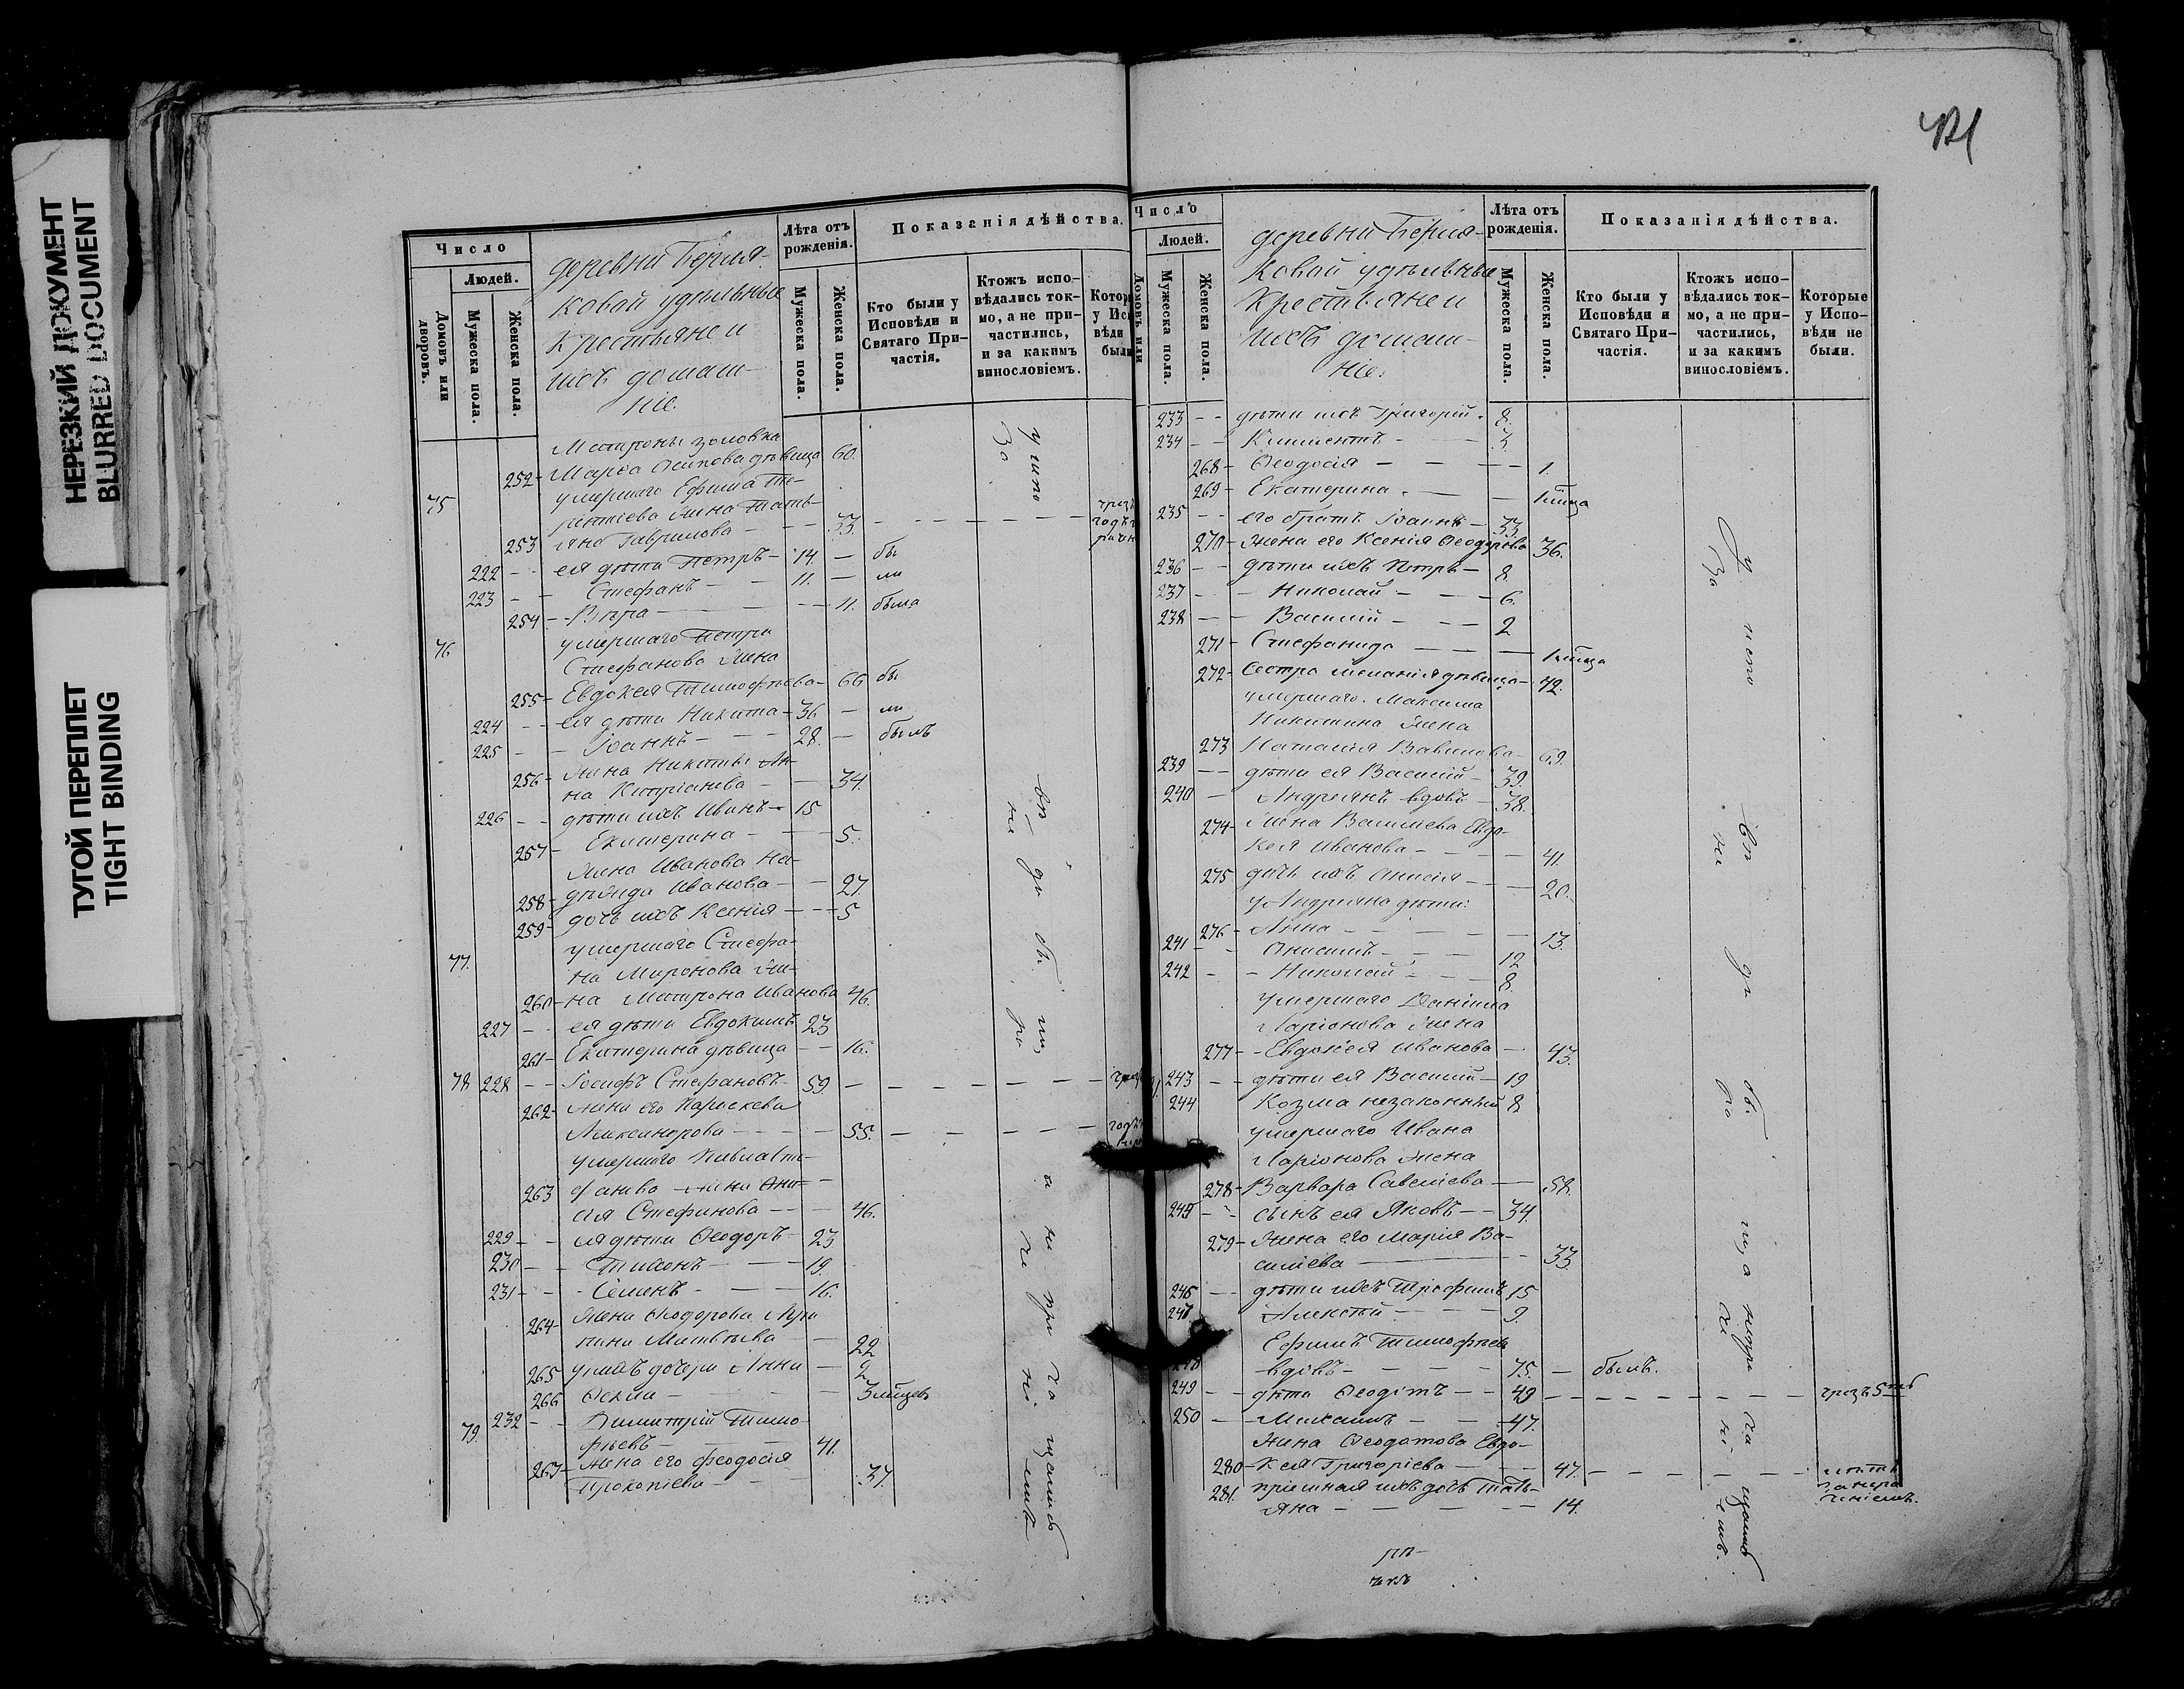 НЕРЕЗКИЙ ДОКУМЕНТ
BLURRED DOCUMENT
ТУГОЙ ПЕРЕПЛЕТ
TIGHT BINDING
Число
Людей.
Домовъ или дворовъ.
Мужеска пола.
Женска пола.
деревни
ковай удѣльные
крестьяне и
ихъ домаш-
ніе.
Лѣта отъ рожденія.
Мужеска пола.
Женска пола.
Показанія дѣйства.
Кто были у Исповѣди и Святаго Причастія.
Ктожъ исповѣдались токмо, а не причастились, и за какимъ винословіемъ.
Матроны золовка
252 - Марѳа Осипова дѣвица 60.
75 умершаго Ефима Те-
рентіева жена Тать-
253 яна Гаврилова - 33.
222 - ея дѣти Петръ - 14. - бы
223 - Стефанъ - 11. - ли
254 - Вѣра - 11. была
76 умершаго Петра
Стефанова жена
255 - Евдокея Тимофѣева - 66 бы
224 - ея дѣти Никита - 36 - ли
225 - Іоаннъ - 28. - былъ
жена Никиты Ан-
256 - на Кипріанова - 34.
226 - дѣти ихъ Иванъ - 15
257 - Екатерина - 5.
жена Иванова На-
258 - дѣжда Иванова - 27
259 - дочь ихъ Ксенія - 5
77. умершаго Стефа-
на Миронова же-
260 - на Матрона Иванова 46.
227 - ея дѣти Евдокимъ 23
261 - Екатерина дѣвица - 16.
78 228 - Іосифъ Стефановъ - 59.
262 - жена его Параскева
Александрова - 55.
умершаго Павла Сте-
263 фанова жена Ани-
сія Стефанова - 46.
229 - ея дѣти Ѳеодоръ - 23
230 - Тихонъ - 19.
231 - Семенъ - 16.
264 - жена Ѳеодорова Агри
пина Матвѣева - 22
265 у нихъ дочери Анна - 2
266
79. 232 - Димитрій Тимо-
фѣевъ - 41.
267 - жена его Феодосія
Прокопіева - 37.
Число
Людей.
Домовъ или
Мужеска пола.
Женска пола.
деревни
ковай удѣльные
крестьяне и
ихъ домаш-
ніе.
Лѣта отъ рожденія.
Мужеска пола.
Женска пола.
Показанія дѣйства.
Кто были у Исповѣди и Святаго Причастія.
Ктожъ исповѣдались токмо, а не причастились, и за какимъ винословіемъ.
Которые у Исповѣди не были.
233 - дѣти ихъ Григорій. 8.
234 - Климентъ - 3.
268 - Ѳеодосія - 1.
269 - Екатерина.
235 - его братъ Іоаннъ - 33
270 - жена его Ксенія Ѳеодорова 36.
236 - дѣти ихъ Петръ - 8.
237 - Николай - 6.
238 - Василій - 2
271 - Стефанида
272 - Сестра Меланія дѣвица - 42.
умершаго Максима
Никитина жена
273 Наталія Вавилова - 69.
239 - дѣти ея Василій - 39.
240 - Андреянъ вдовъ - 38.
274 - жена Василіева Евдо-
кея Иванова - 41.
275 дочь ихъ Анисія - 20.
у Андреяна дѣти:
276 - Анна - 13.
241 - Анисимъ - 12
242 - Николай - 8.
умершаго Даніила
Ларіонова жена
277 - Евдокея Иванова - 43.
243 - дѣти ея Василій - 19
244 Козма незаконный 8
умершаго Ивана
Ларіонова жена
278 - Варвара Савеліева - 58.
245 - сынъ ея Яковъ - 34.
279 - жена его Марія Ва-
силіева - 33.
246 - дѣти ихъ Трофимъ 15
247 Алексѣй - 9.
Ефимъ Тимофѣевъ
248 вдовъ - 75. - былъ.
249 - дѣти Ѳеодотъ - 49
250 - Михаилъ - 47.
жена Ѳеодотова Евдо-
280 - кея Григоріева - 47.
281. пріемная ихъ дочь Тать-
яна - 14.